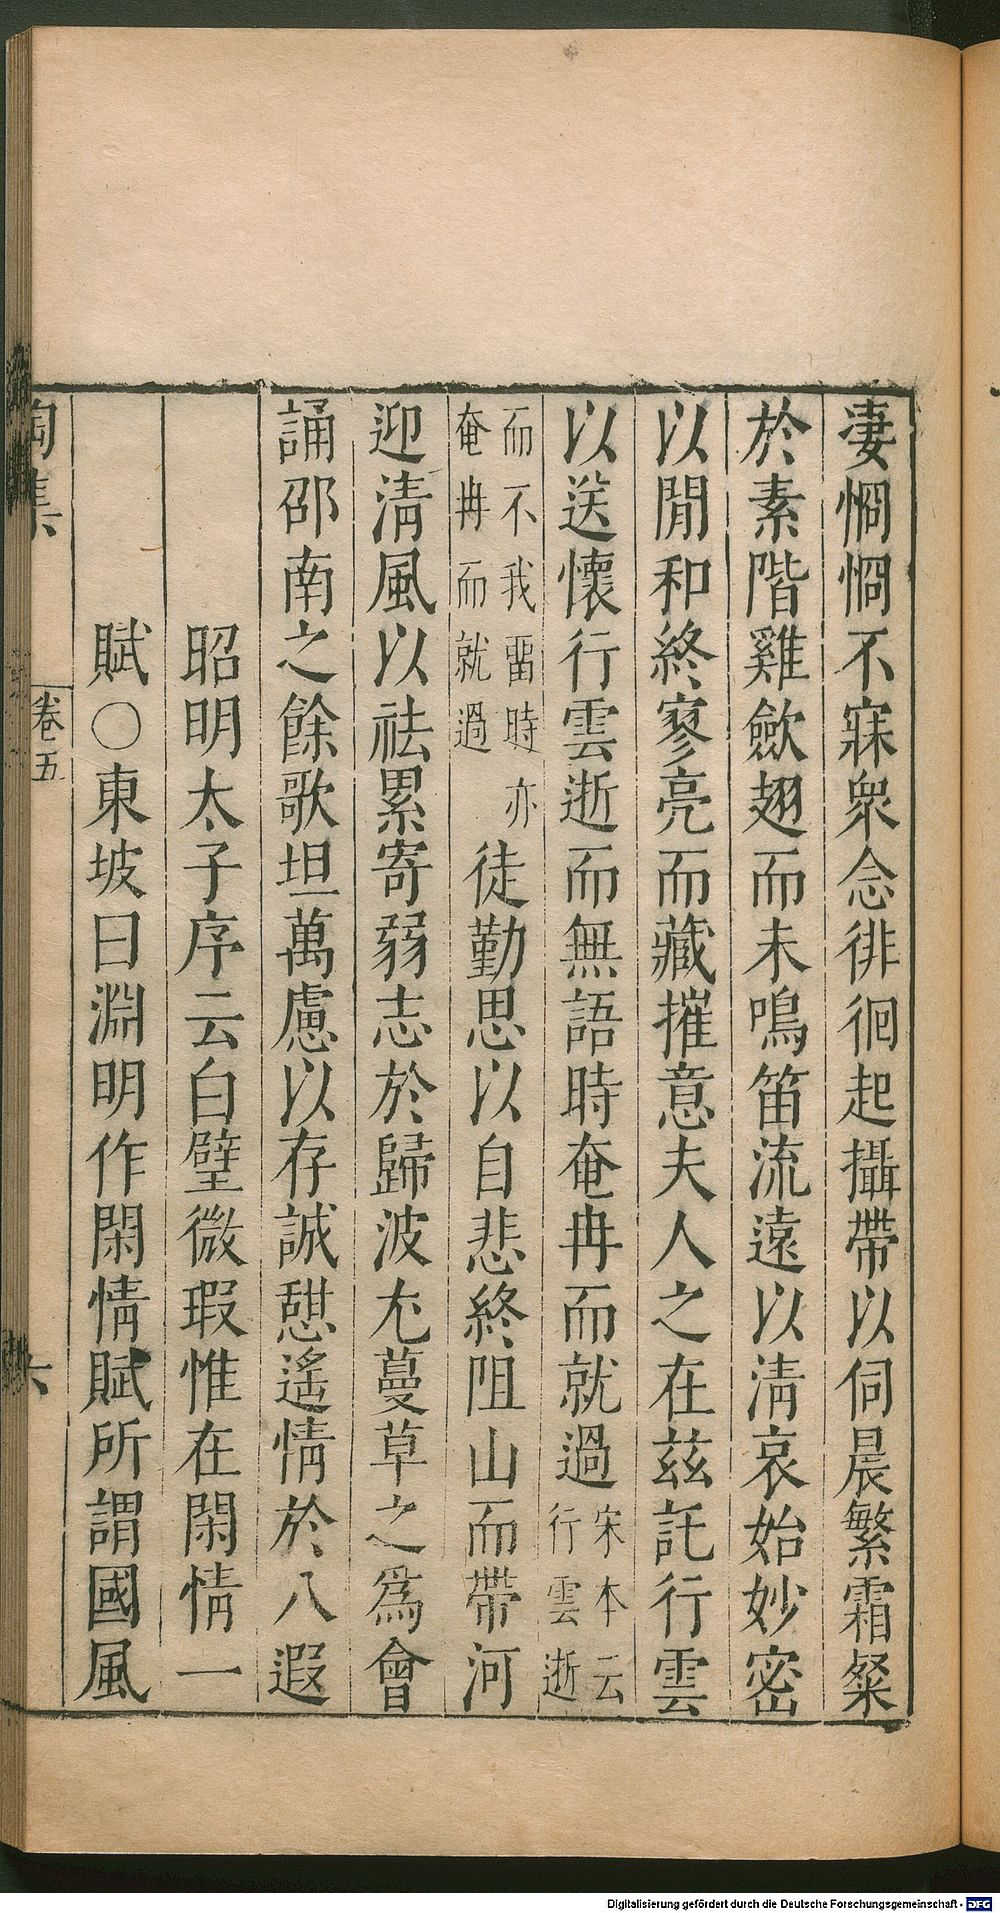 淒惘惘不寐衆念徘徊起攝帶以伺晨繁霜粲
於素階雞歛翅而未鳴笛流遠以淸哀始妙密
以閒和終寥亮而藏摧意夫人之在玆託行雲
以送懷行雲逝而無語時奄冉而就過宋本云行雲逝
而不我畱時亦奄冉而就過徒勤思以自悲終阻山而帶河
迎淸風以祛累寄弱志於歸波尤蔓草之爲會
誦邵南之餘歌坦萬慮以存誠憇遙情於八遐
昭明太子序云白璧微瑕惟在閑情一
賦○東坡曰淵明作閑情賦所謂國風
陶集
卷五
六
Digitalisierung gefördert durch die Deutsche Forschungsgemeinschaft - DFG